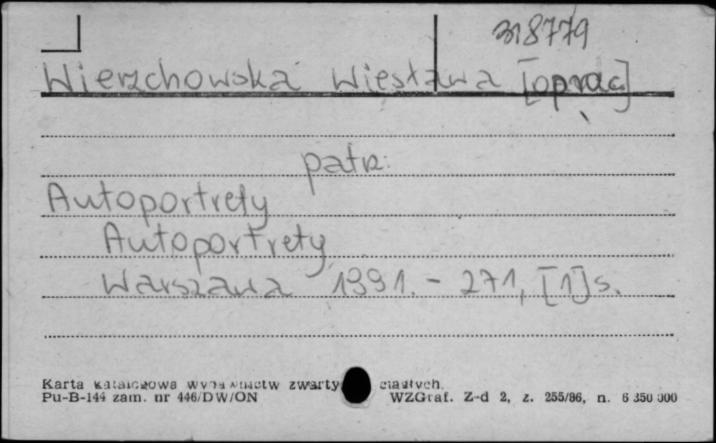 318779
Wierzchowska Wiesława [oprac]
patrz:
Autoportrety
Autoportrety
Warszawa 1991. - 271, [1] s.
Karta katalogowa wydawnictw zwartych ciągłych.
Pu-B-144 zam. nr 446/DW/ON WZGraf. Z-d 2, z. 255/86, n. 6 350 000